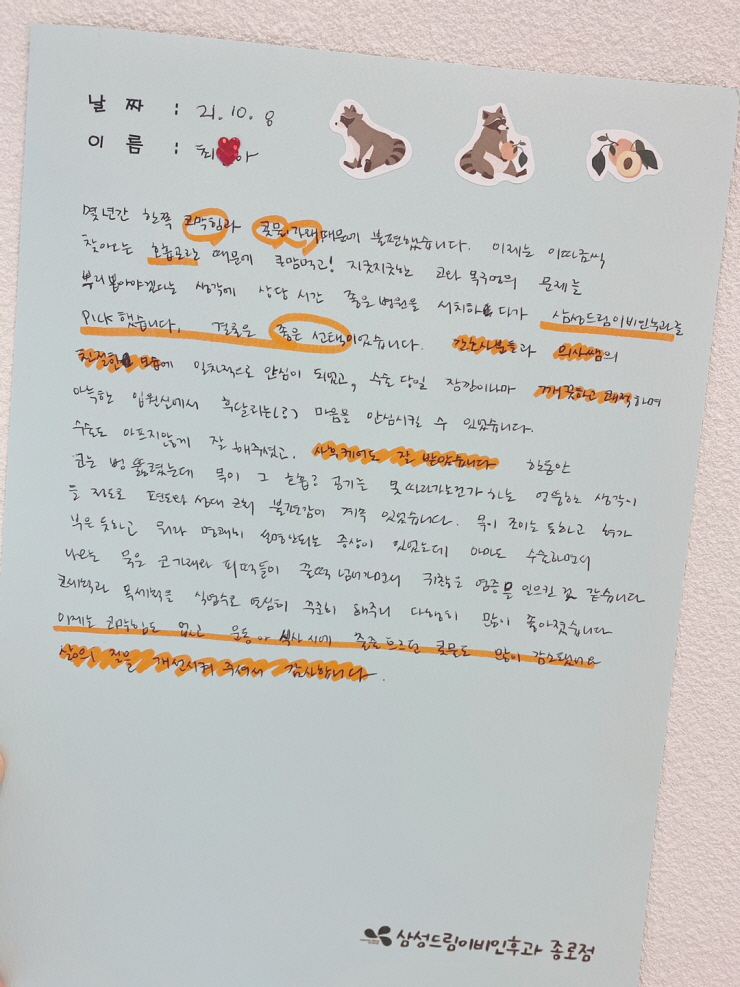 날 짜 : 21. 10. 8
이 름 : 최 아
몇년간 한쪽 코막힘과 콧물, 가래때문에 불편했습니다. 이제는 이따금씩
찾아오는 호흡곤란 때문에 큰맘먹고! 지긋지긋한 코와 목구멍의 문제를
뿌리뽑아야겠다는 생각에 상당 시간 좋은 병원을 서치하다가 삼성드림이비인후과를
Pick 했습니다. 결론은 좋은 선택이었습니다. 간호사분들과 의사쌤의
친절한 모습에 일차적으로 안심이 되었고, 수술 당일 잠깐이나마 깨끗하고 쾌적하며
아늑한 입원실에서 혹달리는(?) 마음을 안심시킬 수 있었습니다.
수술도 아프지않게 잘 해주셨고. 사후케어도 잘 받았습니다 한동안
코는 뻥 뚫렸는데 목이 그 호흡? 공기를 못 따라가는건가 하는 엉뚱한 생각이
들 정도로 편도와 성대 근처 불편감이 계속 있었습니다. 목이 조이는 듯하고 혀가
부은 듯하고 뭐라 명쾌히 설명안되는 증상이 있었는데 아마도 수술하면서
나오는 묵은 코가래와 피떡들이 꿀떡 넘어가면서 귀찮은 염증을 일으킨 것 같습니다
코세척과 목세척을 식염수로 열심히 꾸준히 해주니 다행히 많이 좋아졌습니다
이제는 코막힘도 없고 운동 식사 시에 줄줄 흐르던 콧물도 많이 감소됐어요
삶의 질을 개선시켜 주셔서 감사합니다.
삼성드림이비인후과 종로점